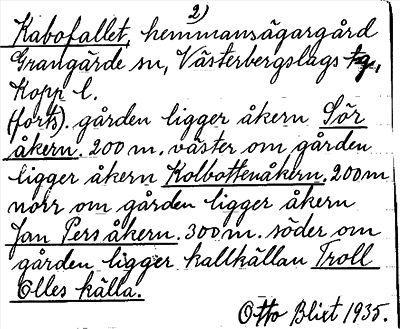 2)
Kabofallet, hemmansägargård
Grangärde sn, Västerbergslags tg,
Kopp l.
(forts). gården ligger åkern Sör
åkern. 200 m. väster om gården
ligger åkern Kolbottenåkern. 200 m
norr om gården ligger åkern
Jan Pers åkern. 300 m. söder om
gården ligger kallkällan Troll
Olles källa.
Otto Blixt 1935.